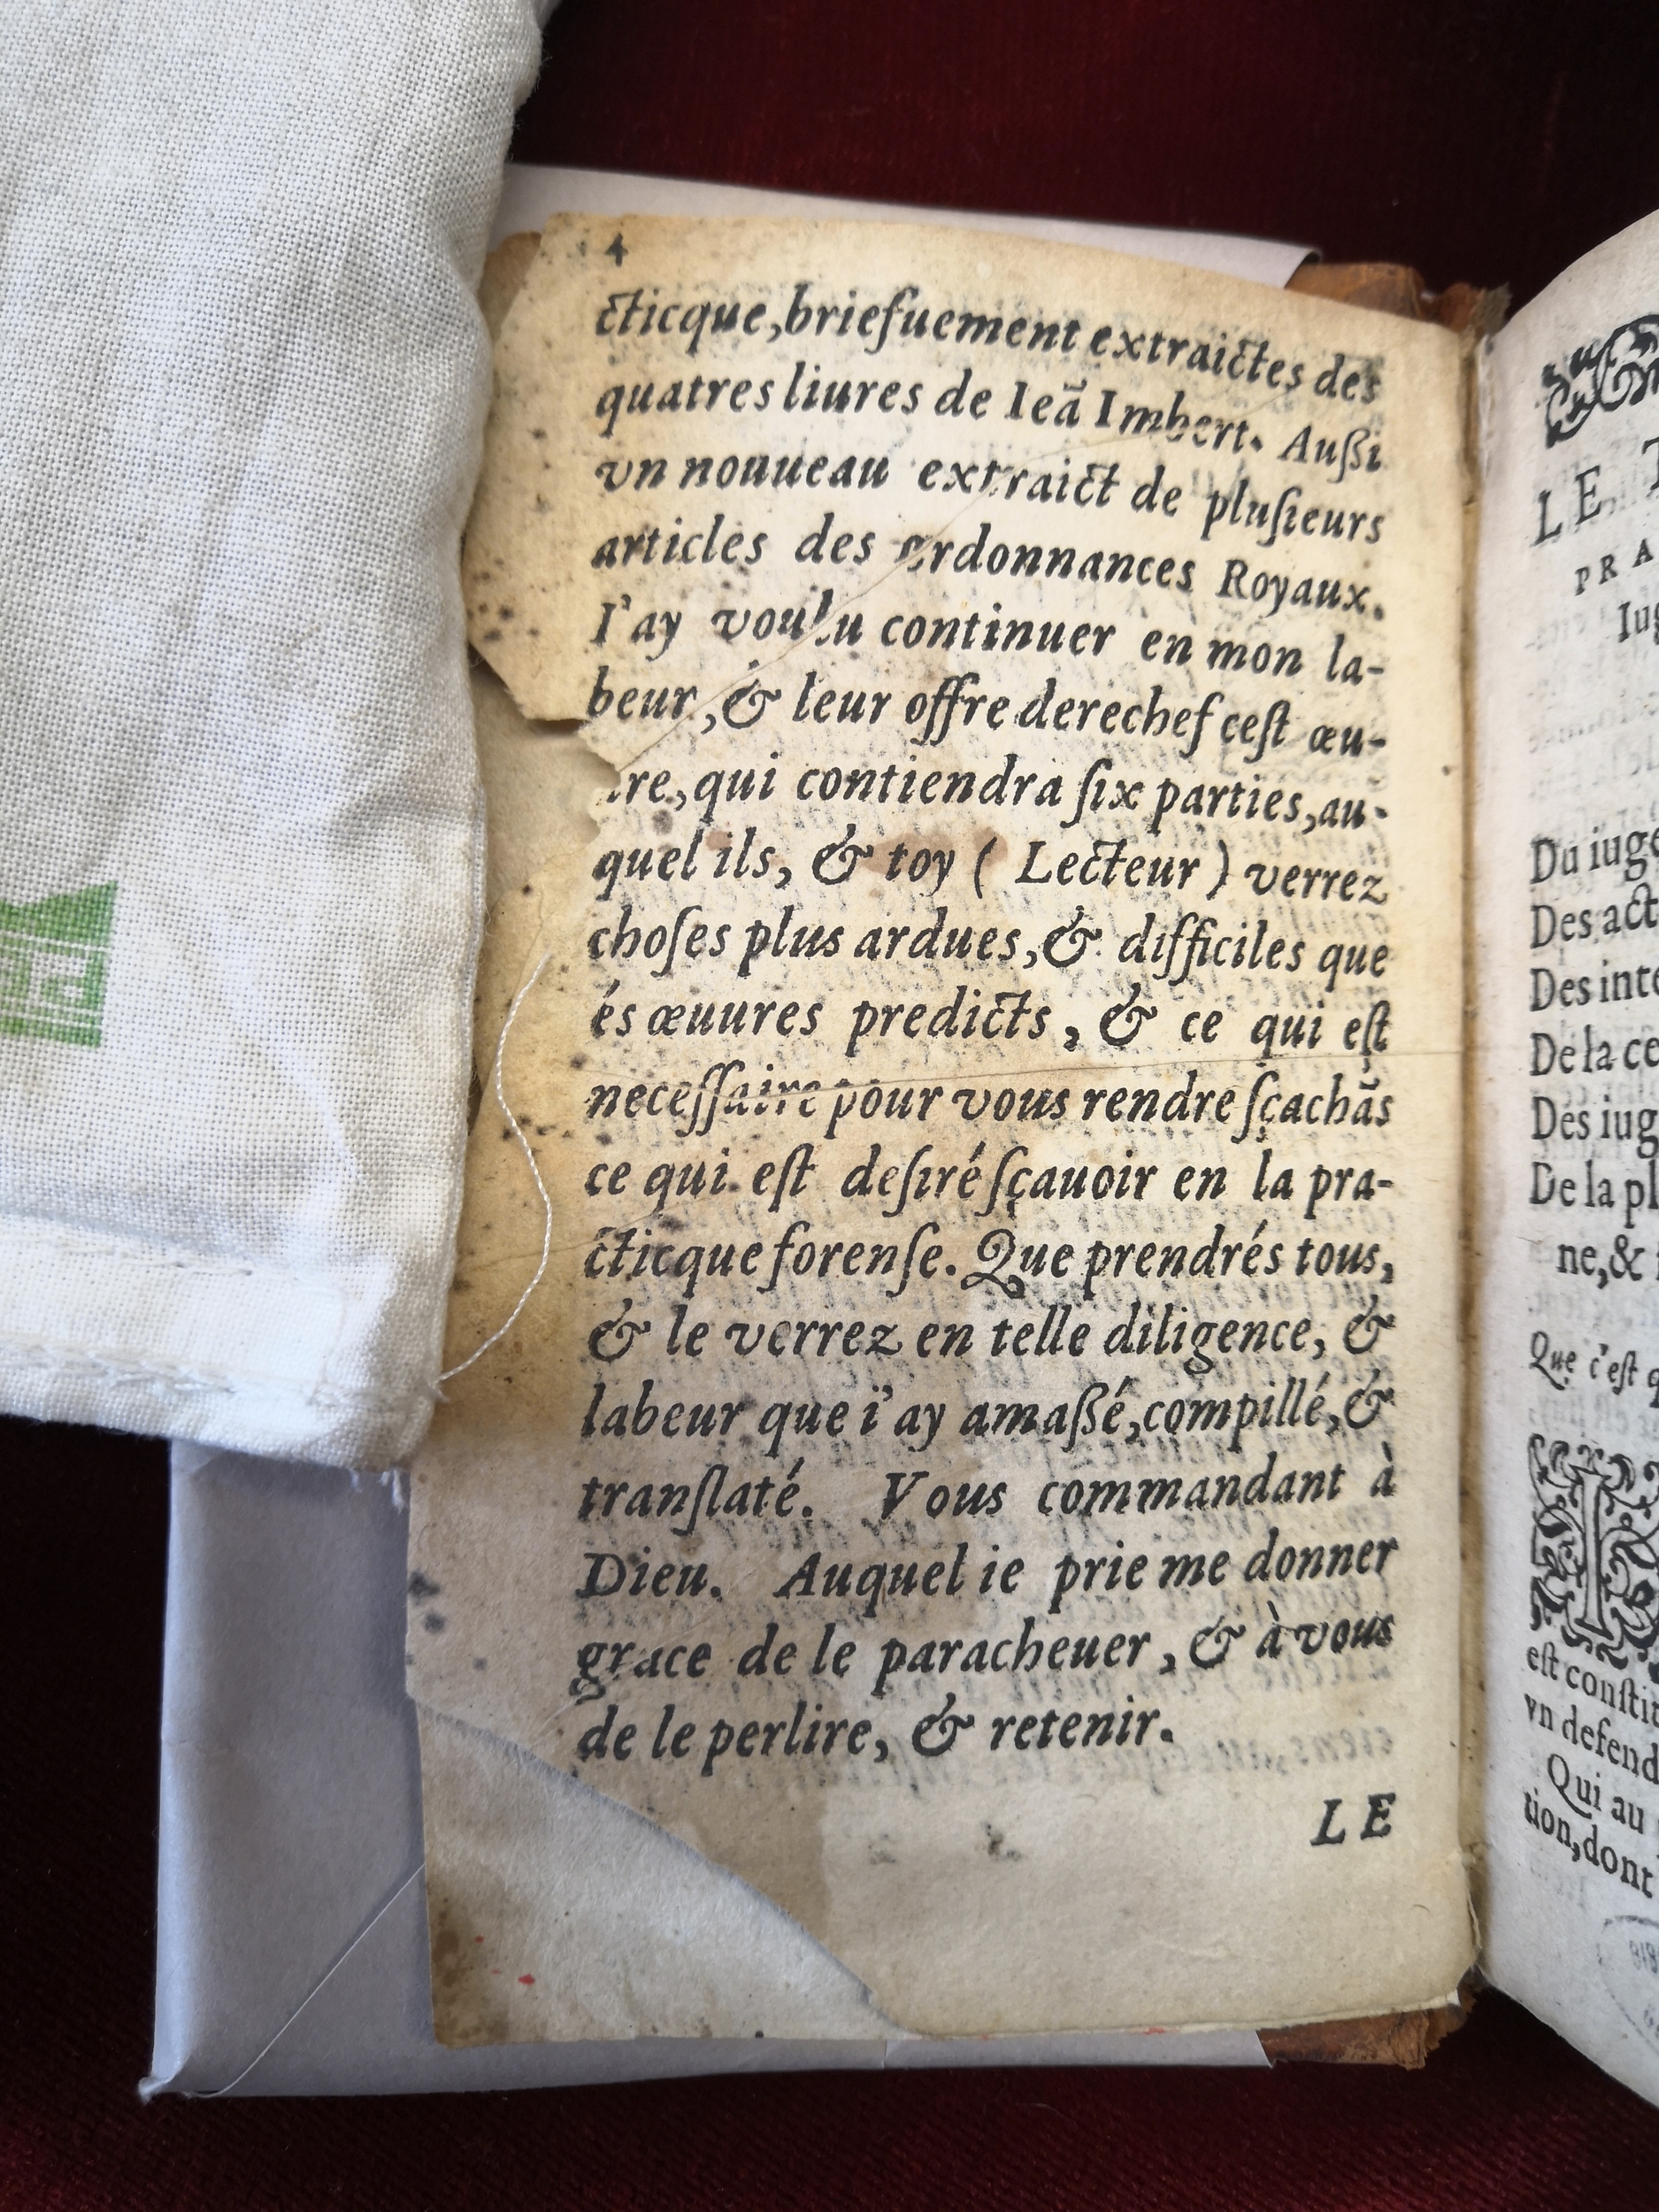 4
cticque, briefuement extraictes des
quatres liures de Ieã Imbert. Außi
vn nouueau extraict de pluſieurs
articles des ordonnances Royaux.
I'ay voulu continuer en mon la-
beur, & leur offre derechef ceſt œu-
re, qui contiendra ſix parties, au-
quel ils, & toy ( Lecteur ) verrez
choſes plus ardues, & difficiles que
és œuures predicts, & ce qui eſt
neceſſaire pour vous rendre ſçachãs
ce qui eſt deſiré ſçauoir en la pra-
cticque forenſe. Que prendrés tous,
& le verrez en telle diligence, &
labeur que i'ay amaßé, compillé, &
tranſlaté. Vous commandant à
Dieu. Auquel ie prie me donner
grace de le paracheuer, & à vous
de le perlire, & retenir.
LE
LE
PRA
Iug
Du iuge
Des act
Des inte
De la ce
Des iug
De la pl
ne, &
Que c'eſt q
eſt conſtit
vn defend
Qui au
tion, dont